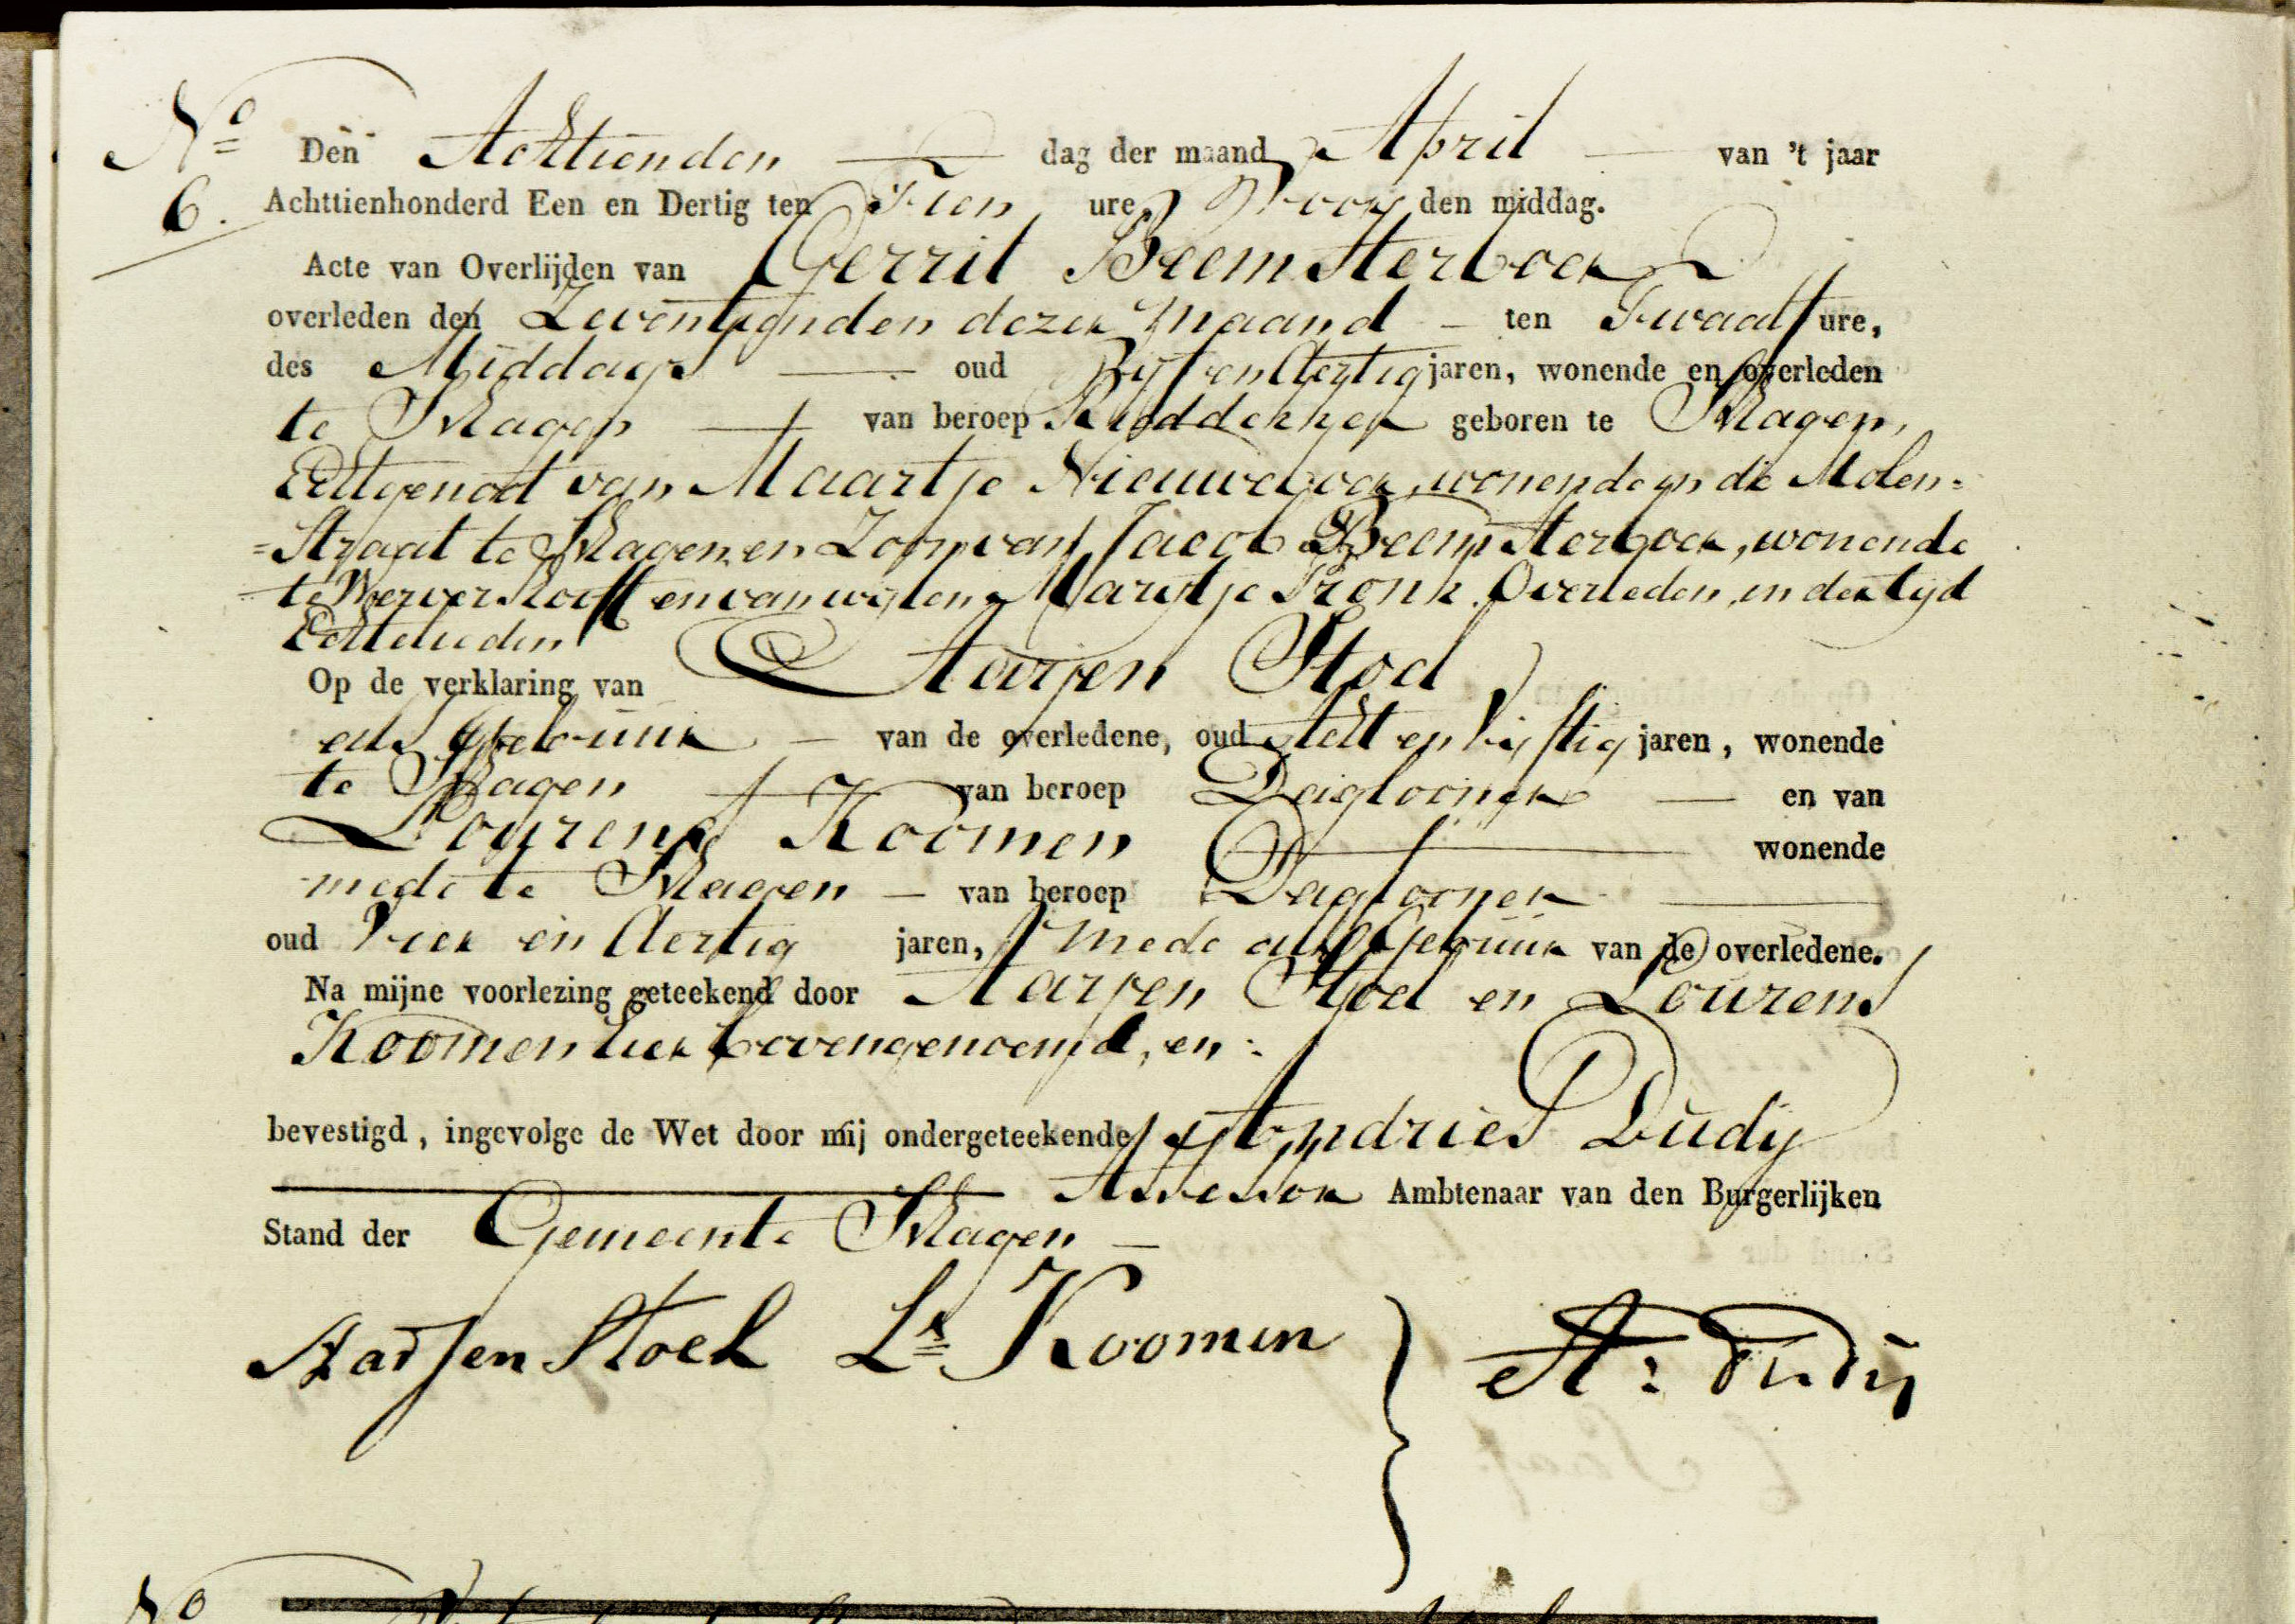 No Den Achttienden dag der maand April van 't jaar
6. Achttienhonderd Een en Dertig ten Tien ure Voor den middag.
Acte van Overlijden van Gerrit Beemsterboer
overleden den Zeventienden dezer Maand ten Twaalf ure,
des Middags oud Vijf en dertig jaren, wonende en overleden
te Schagen van beroep geboren te Schagen,
Echtgenoot van Maartje Nieuweboer, wonende in de Molen=
=Straat te Schagen, en Zoon van Jacob Beemsterboer, wonende
te Wervershooff en van wijlen Marytje Pronk Overleden, in der tyd
Echtelieden
Op de verklaring van Aarjen Stoel
als Gebuur van de overledene, oud Acht en Vijftig jaren, wonende
te Schagen van beroep Daglooner en van
Lourens Koomen wonende
mede te Schagen van beroep Daglooner
oud Vier en dertig jaren, mede als Gebuur van de overledene.
Na mijne voorlezing geteekend door Aarjen Stoel en Lourens
Koomen hier bovengenoemd, en:
bevestigd, ingevolge de Wet door mij ondergeteekende Andries Dudy
Assessor Ambtenaar van den Burgerlijken
Stand der Gemeente Schagen
Aarjen Stoel Ls Koomen As Dudy
No